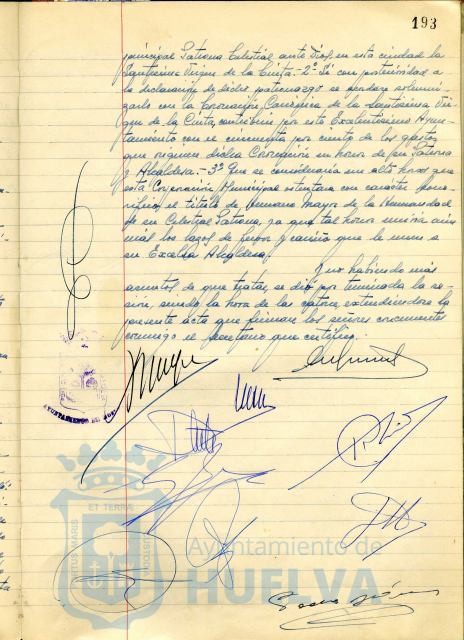 193
principal Patrona Celestial ante Dios, en esta ciudad la
Santísima Virgen de la Cinta.- 2º Si con posterioridad a
la declaración de dicho patronazgo se acordare solem
izarlo con la Coronación Canónica de la Santísima Vir
gen de la Cinta, contribuir por este Excelentísimo Ayun-
tamiento con el cincuenta por ciento de los gastos
que origine dicha Coronación en honor de su Patrona
y Alcaldesa.- 3º Que se consideraría un alto honor que
esta Corporación Municipal ostentara con carácter hono-
rífico el título de Hermano Mayor de la Hermandad
de su Celestial Patrona, ya que tal honor uniría aún
más los lazos de fervor y cariño que le unen a
su Excelsa Alcaldesa.
Y no habiendo más
asuntos de que tratar, se dió por terminada la se-
sión, siendo la hora de las catorce extendiéndose la
presente acta que firman los señores concurrentes
conmigo el secretario que certifico.
AYUNTAMIENTO DE
ET TERRAE
Ayuntamiento de
HUELVA
Pedro